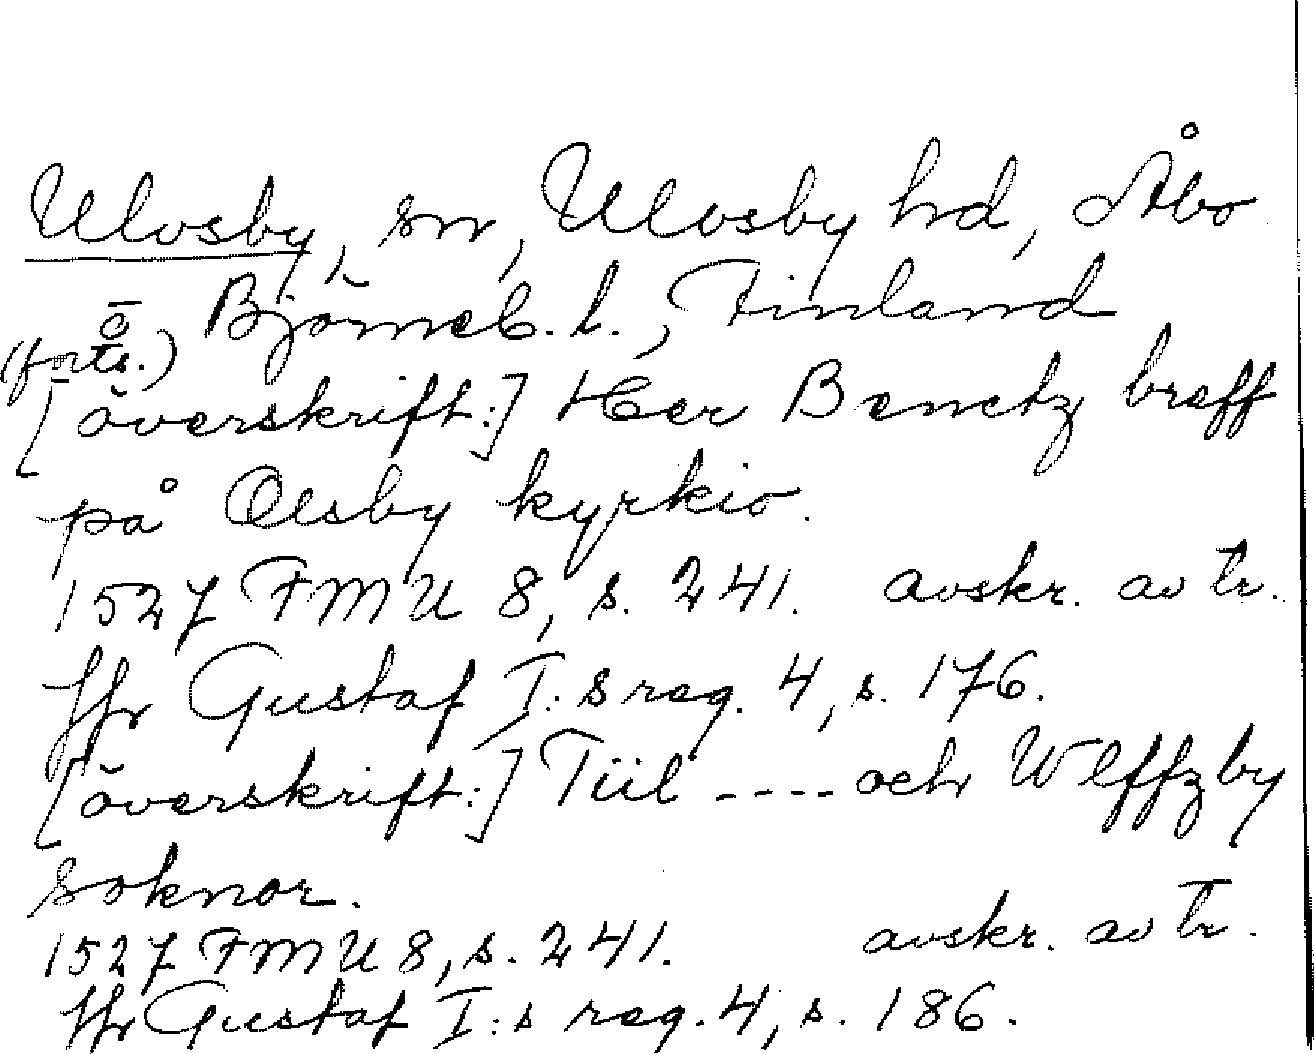 Ulvsby, sn, Ulvsby hd, Åbo
o Björneb. l., Finland
(forts.)
[överskrift:] Her Benctz breff
på Olsby kyrkio.
1527 FMU 8, s. 241. avskr. av tr.
Jfr Gustaf I:s reg. 4, s. 176.
[överskrift:] Tiil ---- och Wlffzby
soknor.
1527 FMU 8, s. 241. avskr. av tr.
Jfr Gustaf I:s reg. 4, s. 186.